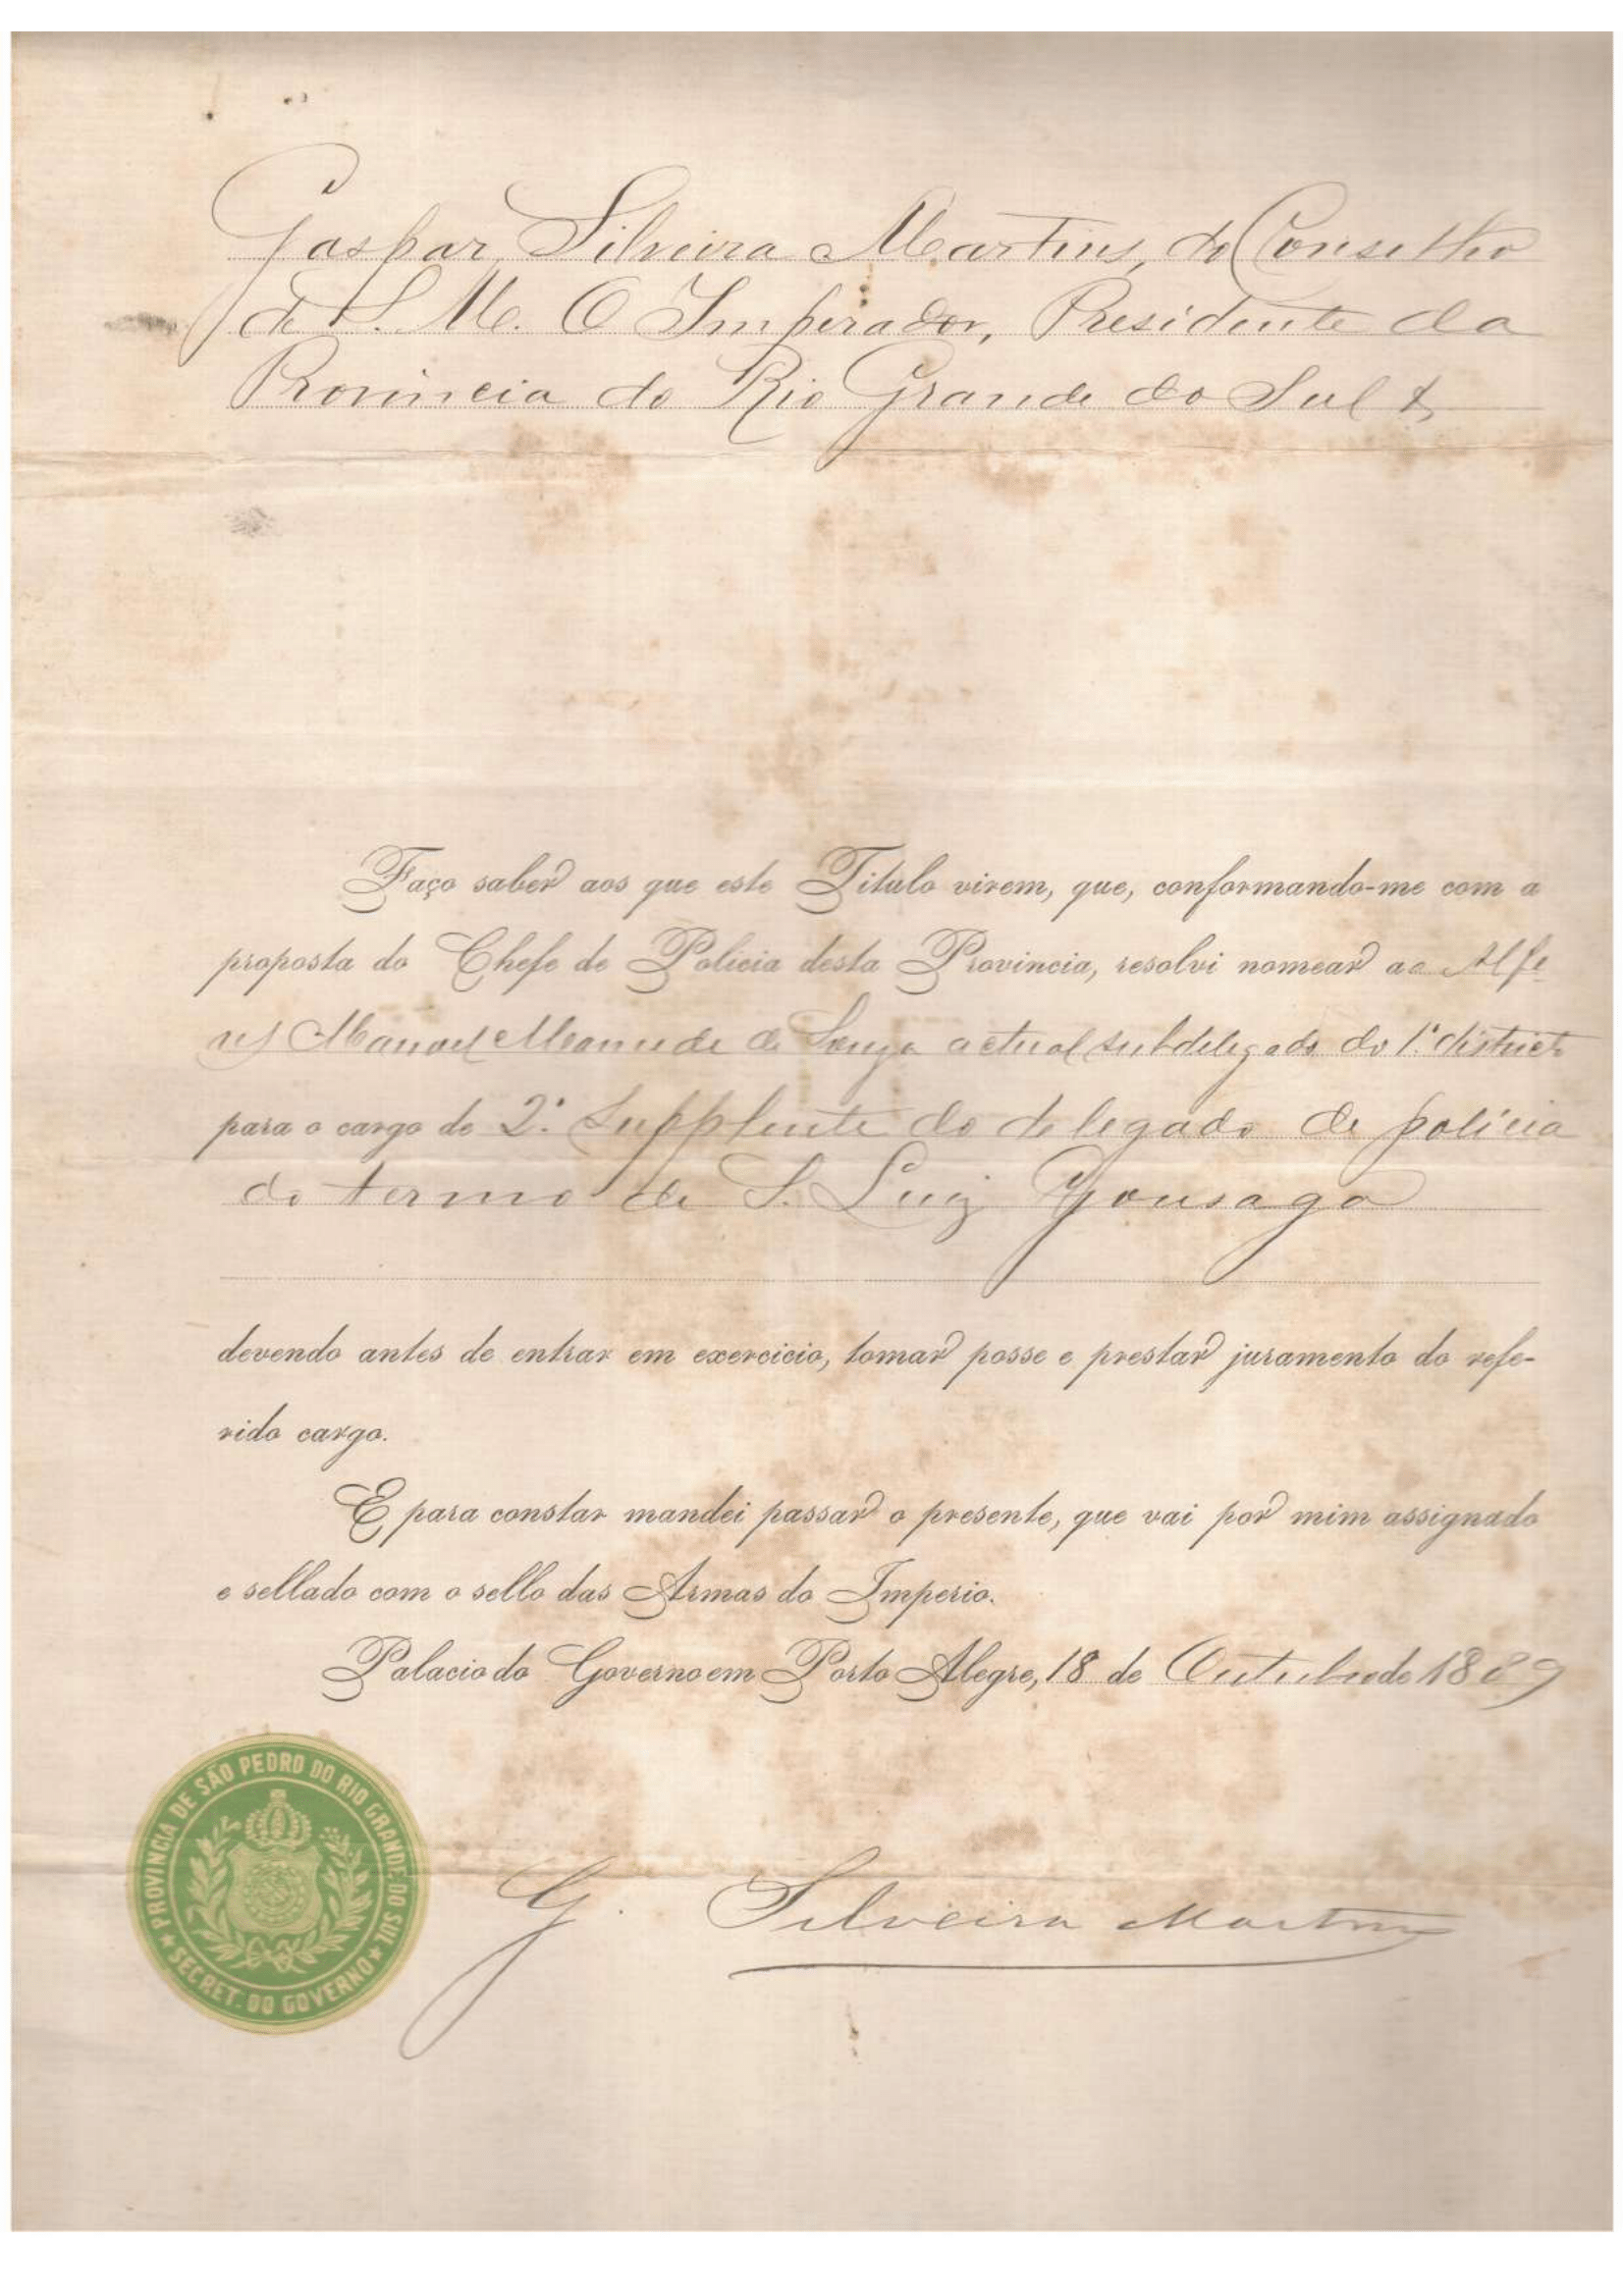 Gaspar Silveira Martins, do Conselho
de S. M. O Imperador, Presidente da
Provincia do Rio Grande do Sul &
Faço saber aos que este Titulo virem, que, conformando-me com a
proposta do Chefe de Policia desta Provincia, resolvi nomear ao Alfe
res Manoel de Souza actual subdelegado do 1º districto
para o cargo de 2º Supplente do delegado de policia
do termo de S. Luiz Gonsaga
devendo antes de entrar em exercicio, tomar posse e prestar juramento do refe-
rido cargo.
E para constar mandei passar o presente, que vai por mim assignado
e sellado com o sello das Armas do Imperio.
Palacio do Governo em Porto Alegre, 18 de Outubro de 1889
PROVINCIA DE SÃO PEDRO DO RIO GRANDE DO SUL
SECRET. DO GOVERNO
G. Silveira Martins